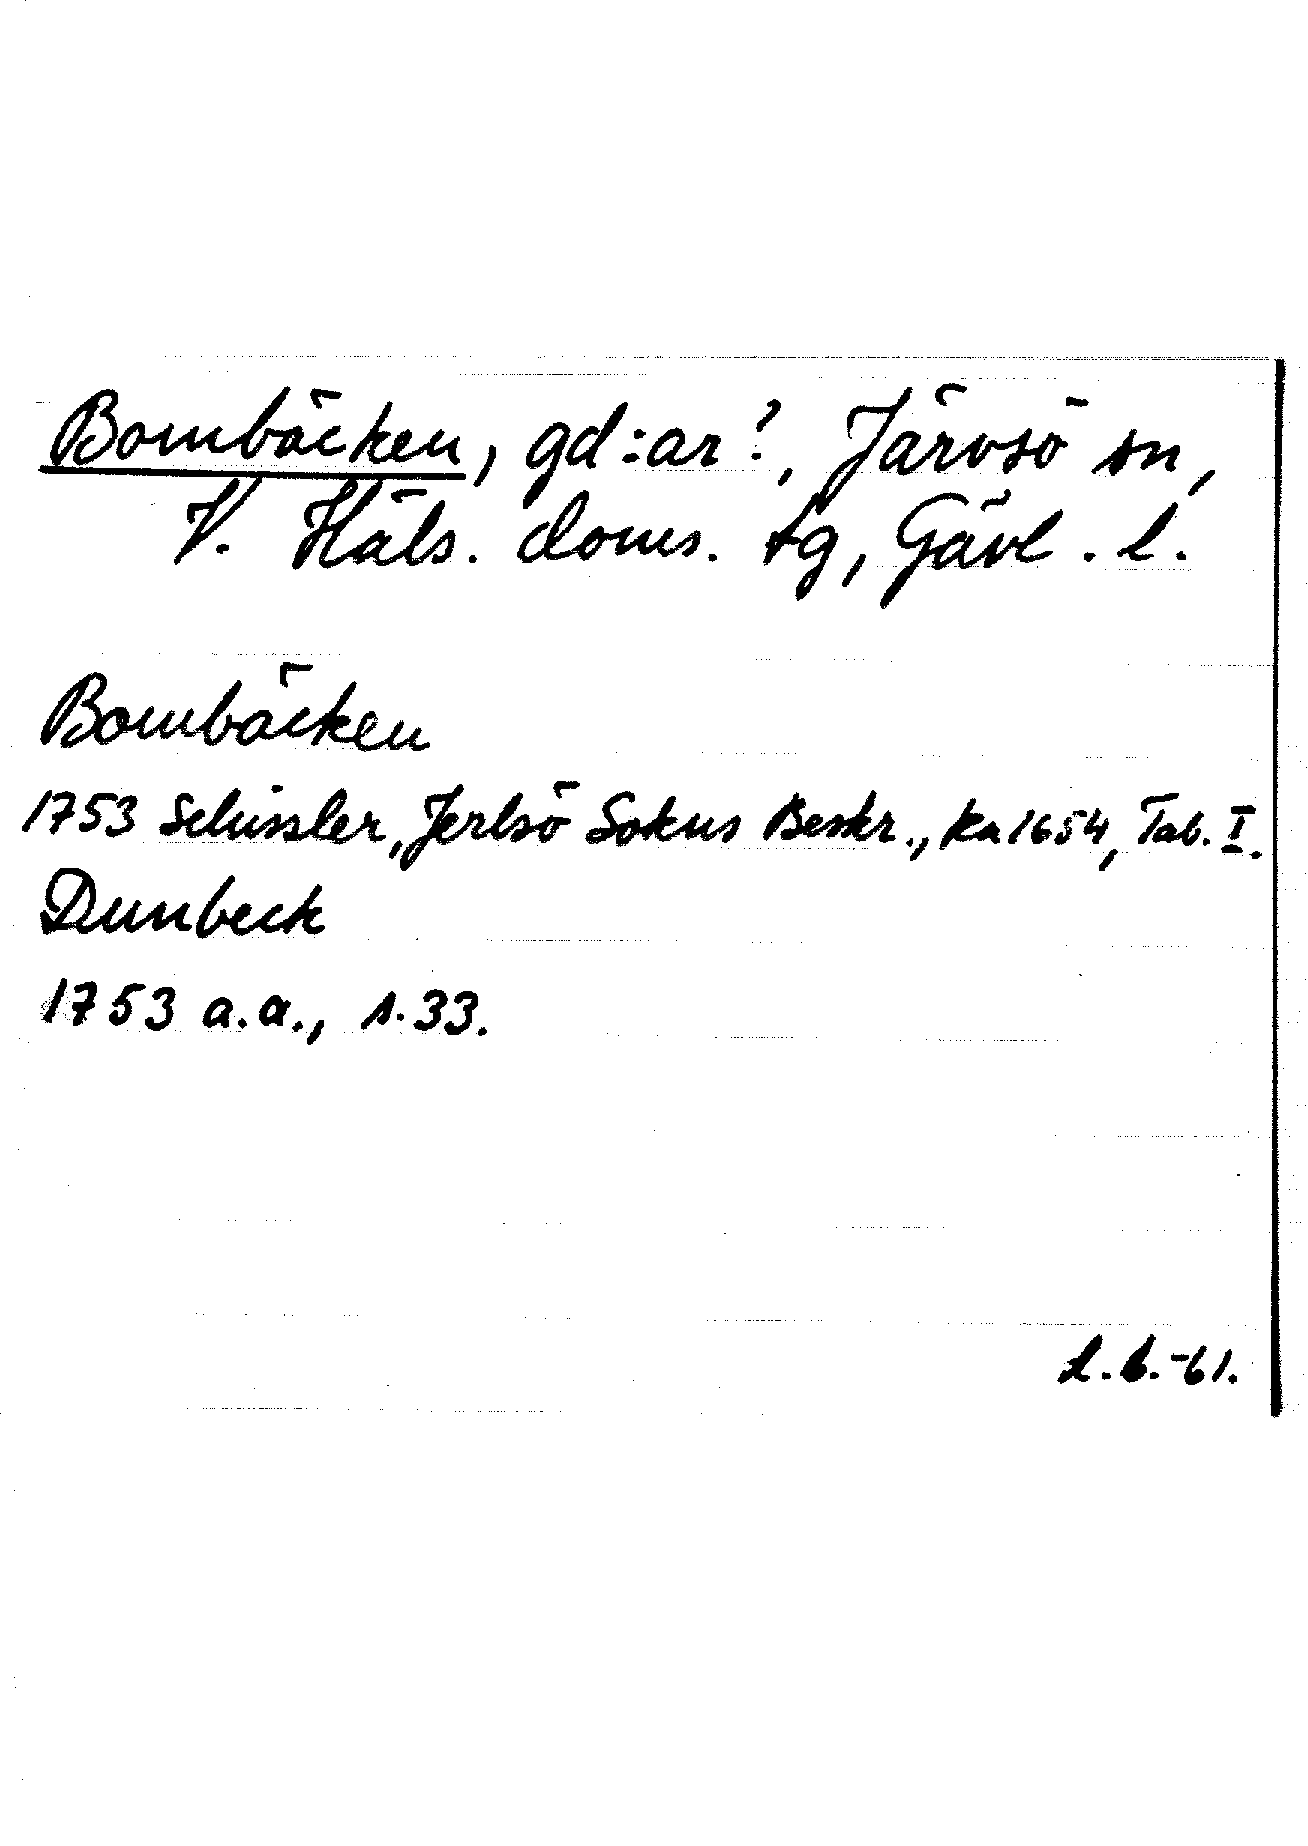 Bombäcken, gd:ar?, Järvsö sn,
V. Häls. doms. tg, Gävl. l.
Bombäcken
1753 Schissler, Jerlsö Sokns Beskr., Ka 1654, Tab. I.
Dunbeck
1753 a.a., s. 33.
L.B.-61.